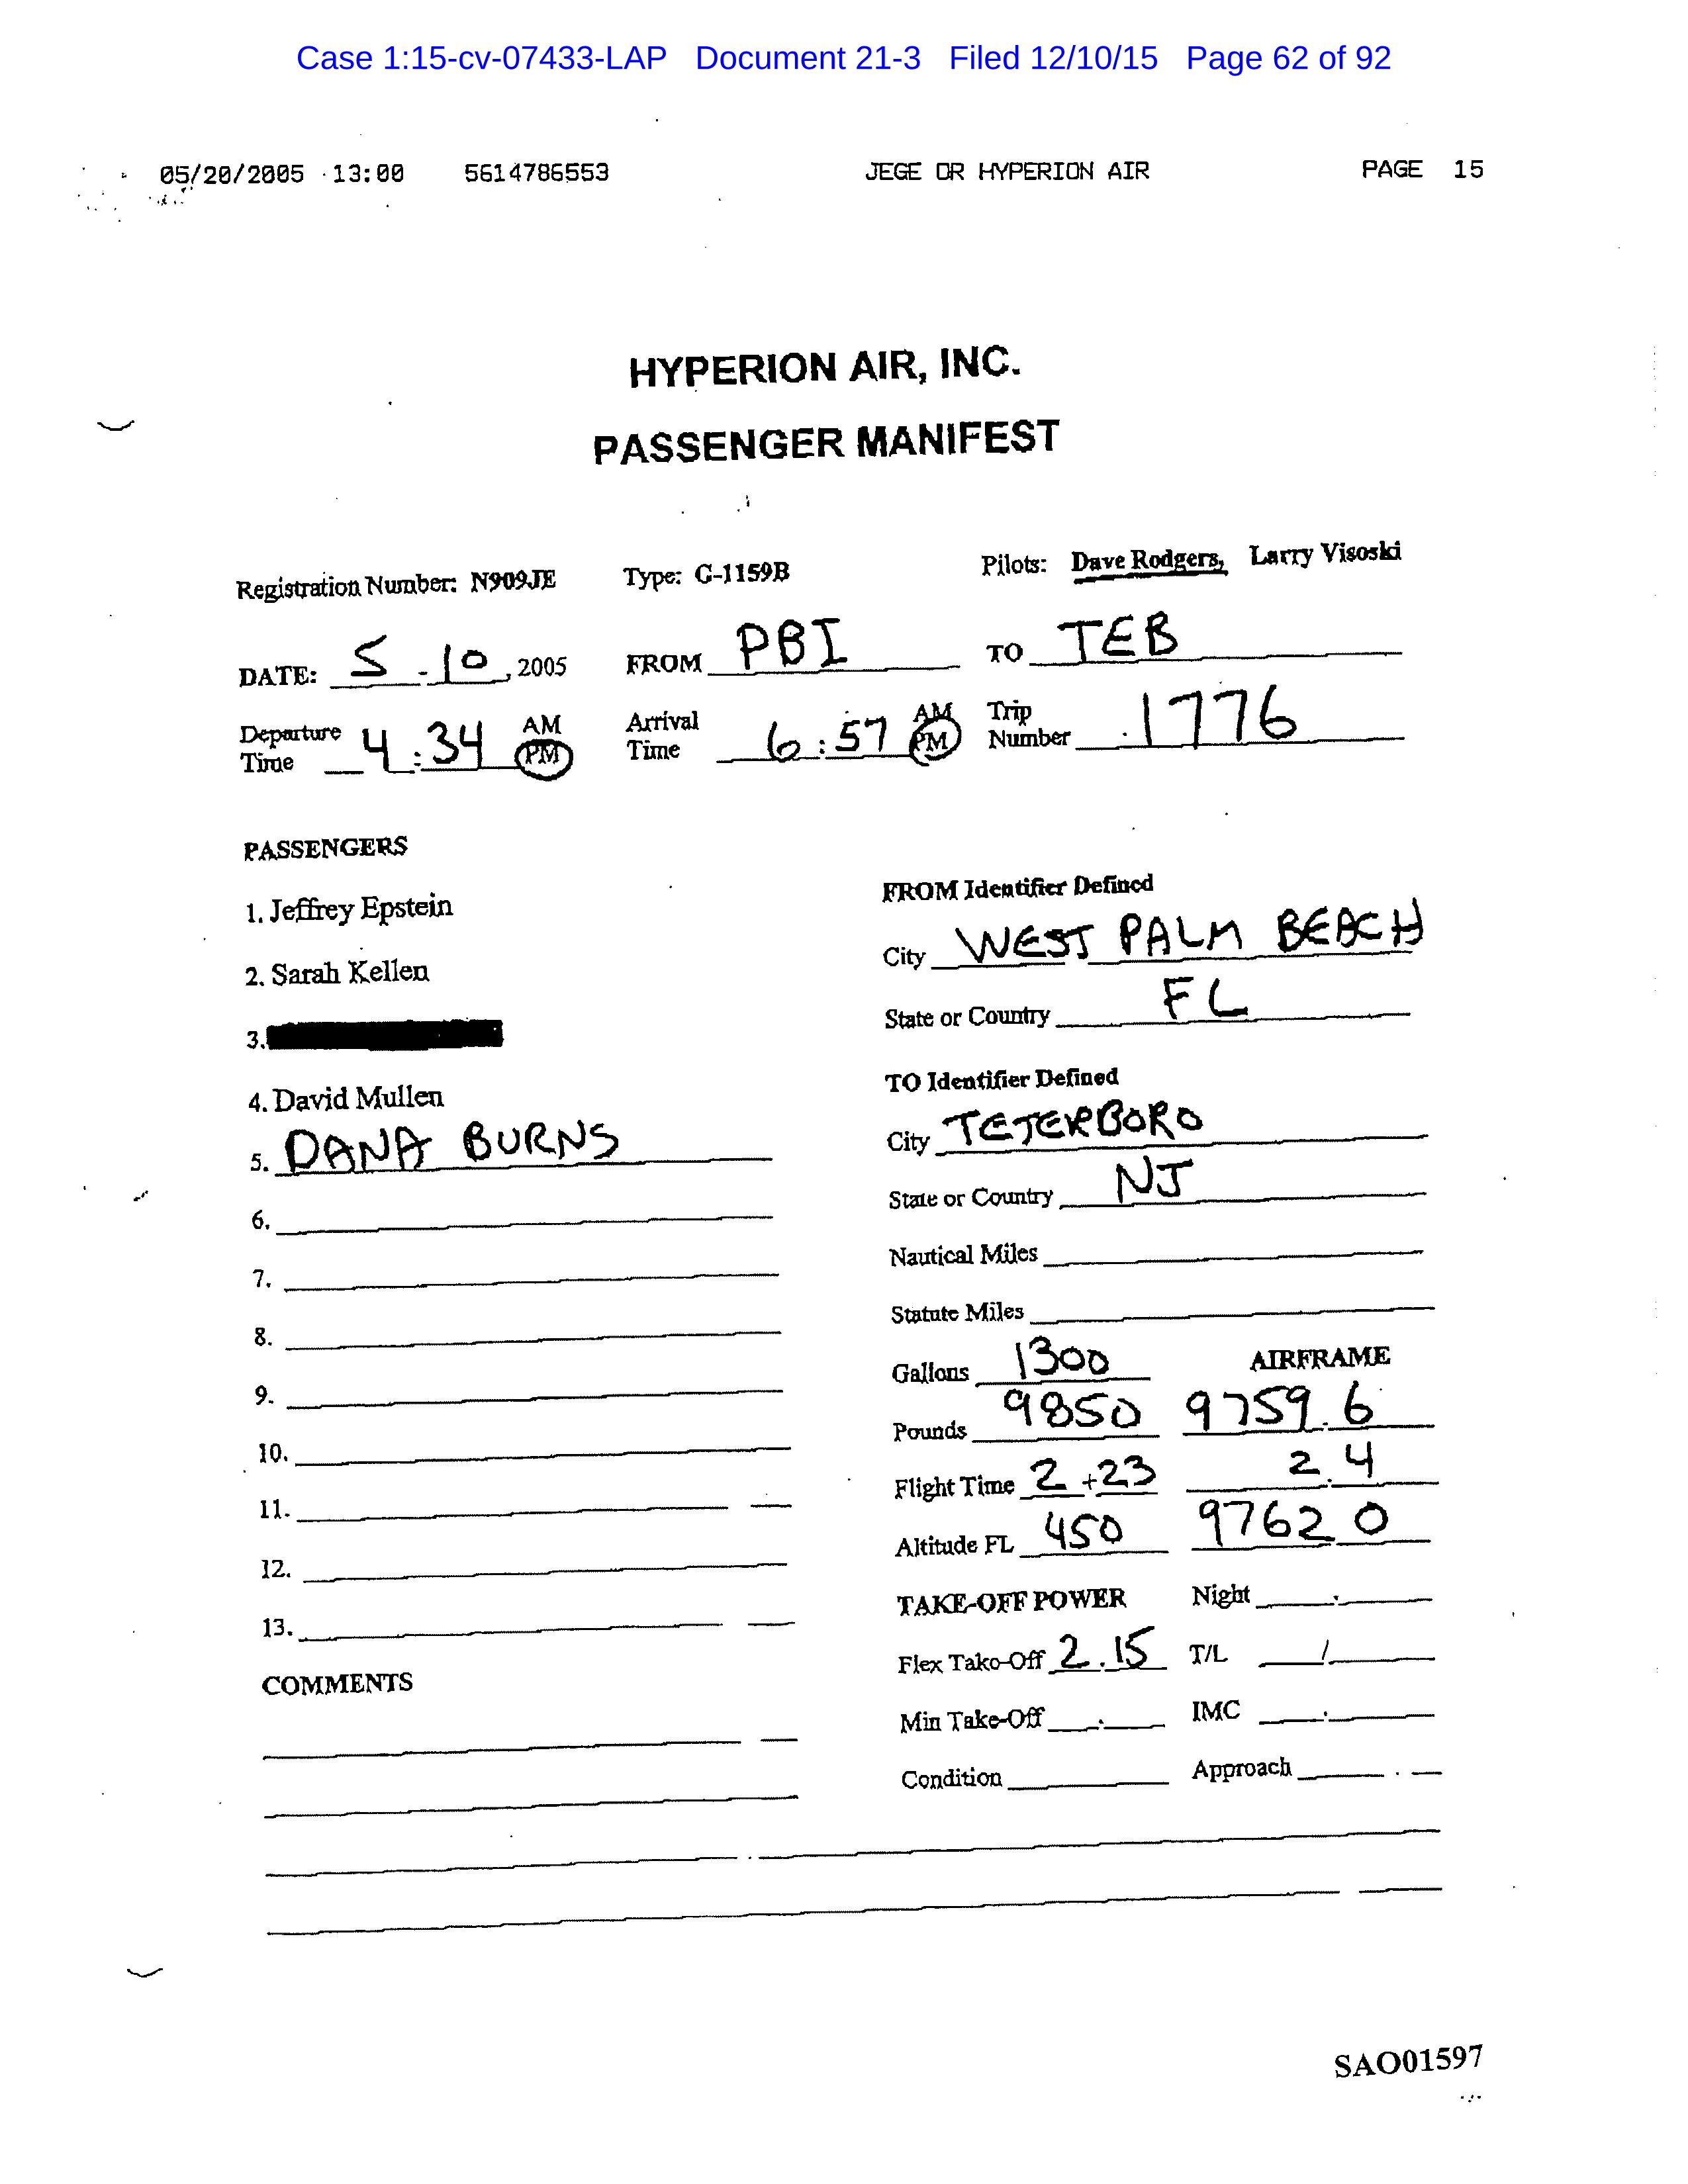 Case 1:15-cv-07433-LAP Document 21-3 Filed 12/10/15 Page 62 of 92
05/20/2005 13:00 5614786553 JEGE OR HYPERION AIR PAGE 15
HYPERION AIR, INC.
PASSENGER MANIFEST
Registration Number: N909JE Type: G-1159B Pilots: Dave Rodgers, Larry Visoski
DATE: 5-10, 2005 FROM PBI TO TEB
Departure Time 4:34 AM PM Arrival Time 6:57 AM PM Trip Number 1776
PASSENGERS
1. Jeffrey Epstein
2. Sarah Kellen
3.
4. David Mullen
5. DANA BURNS
6.
7.
8.
9.
10.
11.
12.
13.
COMMENTS
FROM Identifier Defined
City WEST PALM BEACH
State or Country FL
TO Identifier Defined
City TETERBORO
State or Country NJ
Nautical Miles
Statute Miles
Gallons 1300 AIRFRAME
Pounds 9850 9759.6
Flight Time 2+23 2.4
Altitude FL 450 9762 0
TAKE-OFF POWER Night
Flex Take-Off 2.15 T/L /
Min Take-Off . IMC .
Condition Approach
SAO01597